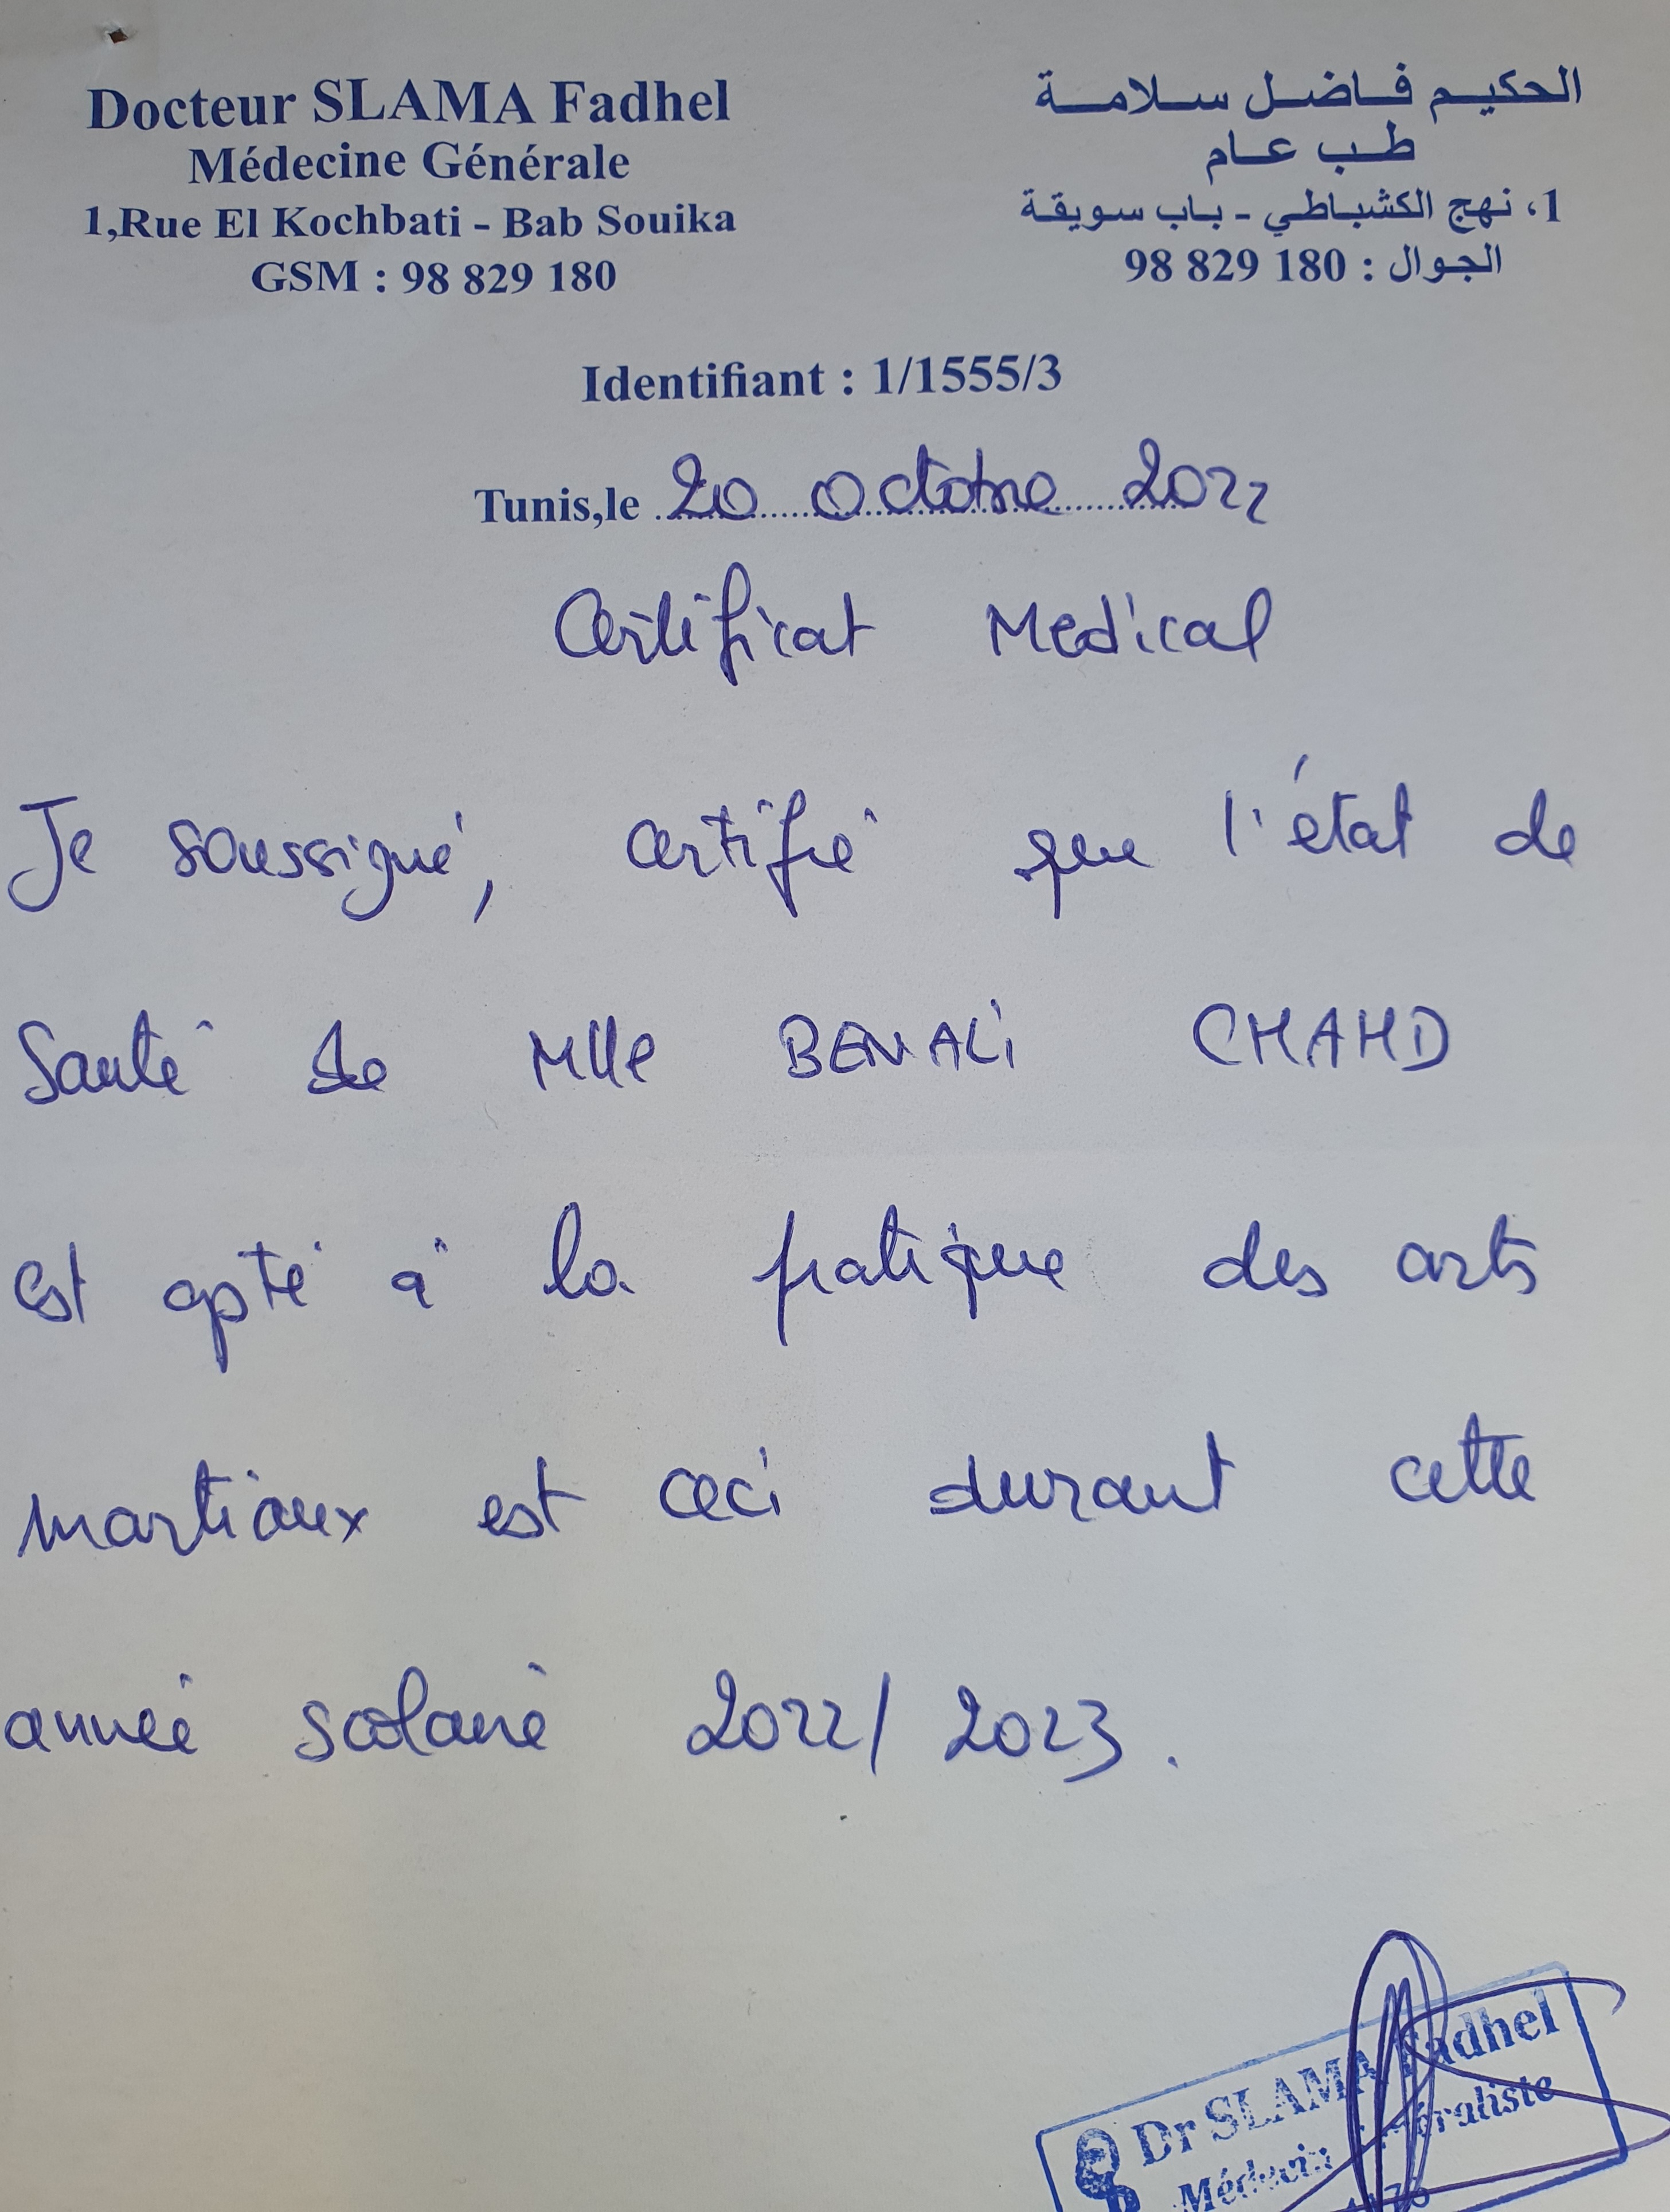 Docteur SLAMA Fadhel
Médecine Générale
1,Rue El Kochbati - Bab Souika
GSM : 98 829 180
الحكيم فاضل سلامة
طب عام
1، نهج الكشباطي - باب سويقة
الجوال : 180 829 98
Identifiant : 1/1555/3
Tunis,le 20 Octobre 2022
Certificat Medical
Je soussigné, certifie que l'état de
Santé de Mlle BENALI CHAHD
est apte à la pratique des arts
martiaux est ceci durant cette
année scolaire 2022/2023.
Dr SLAMA Fadhel
Médecin Généraliste